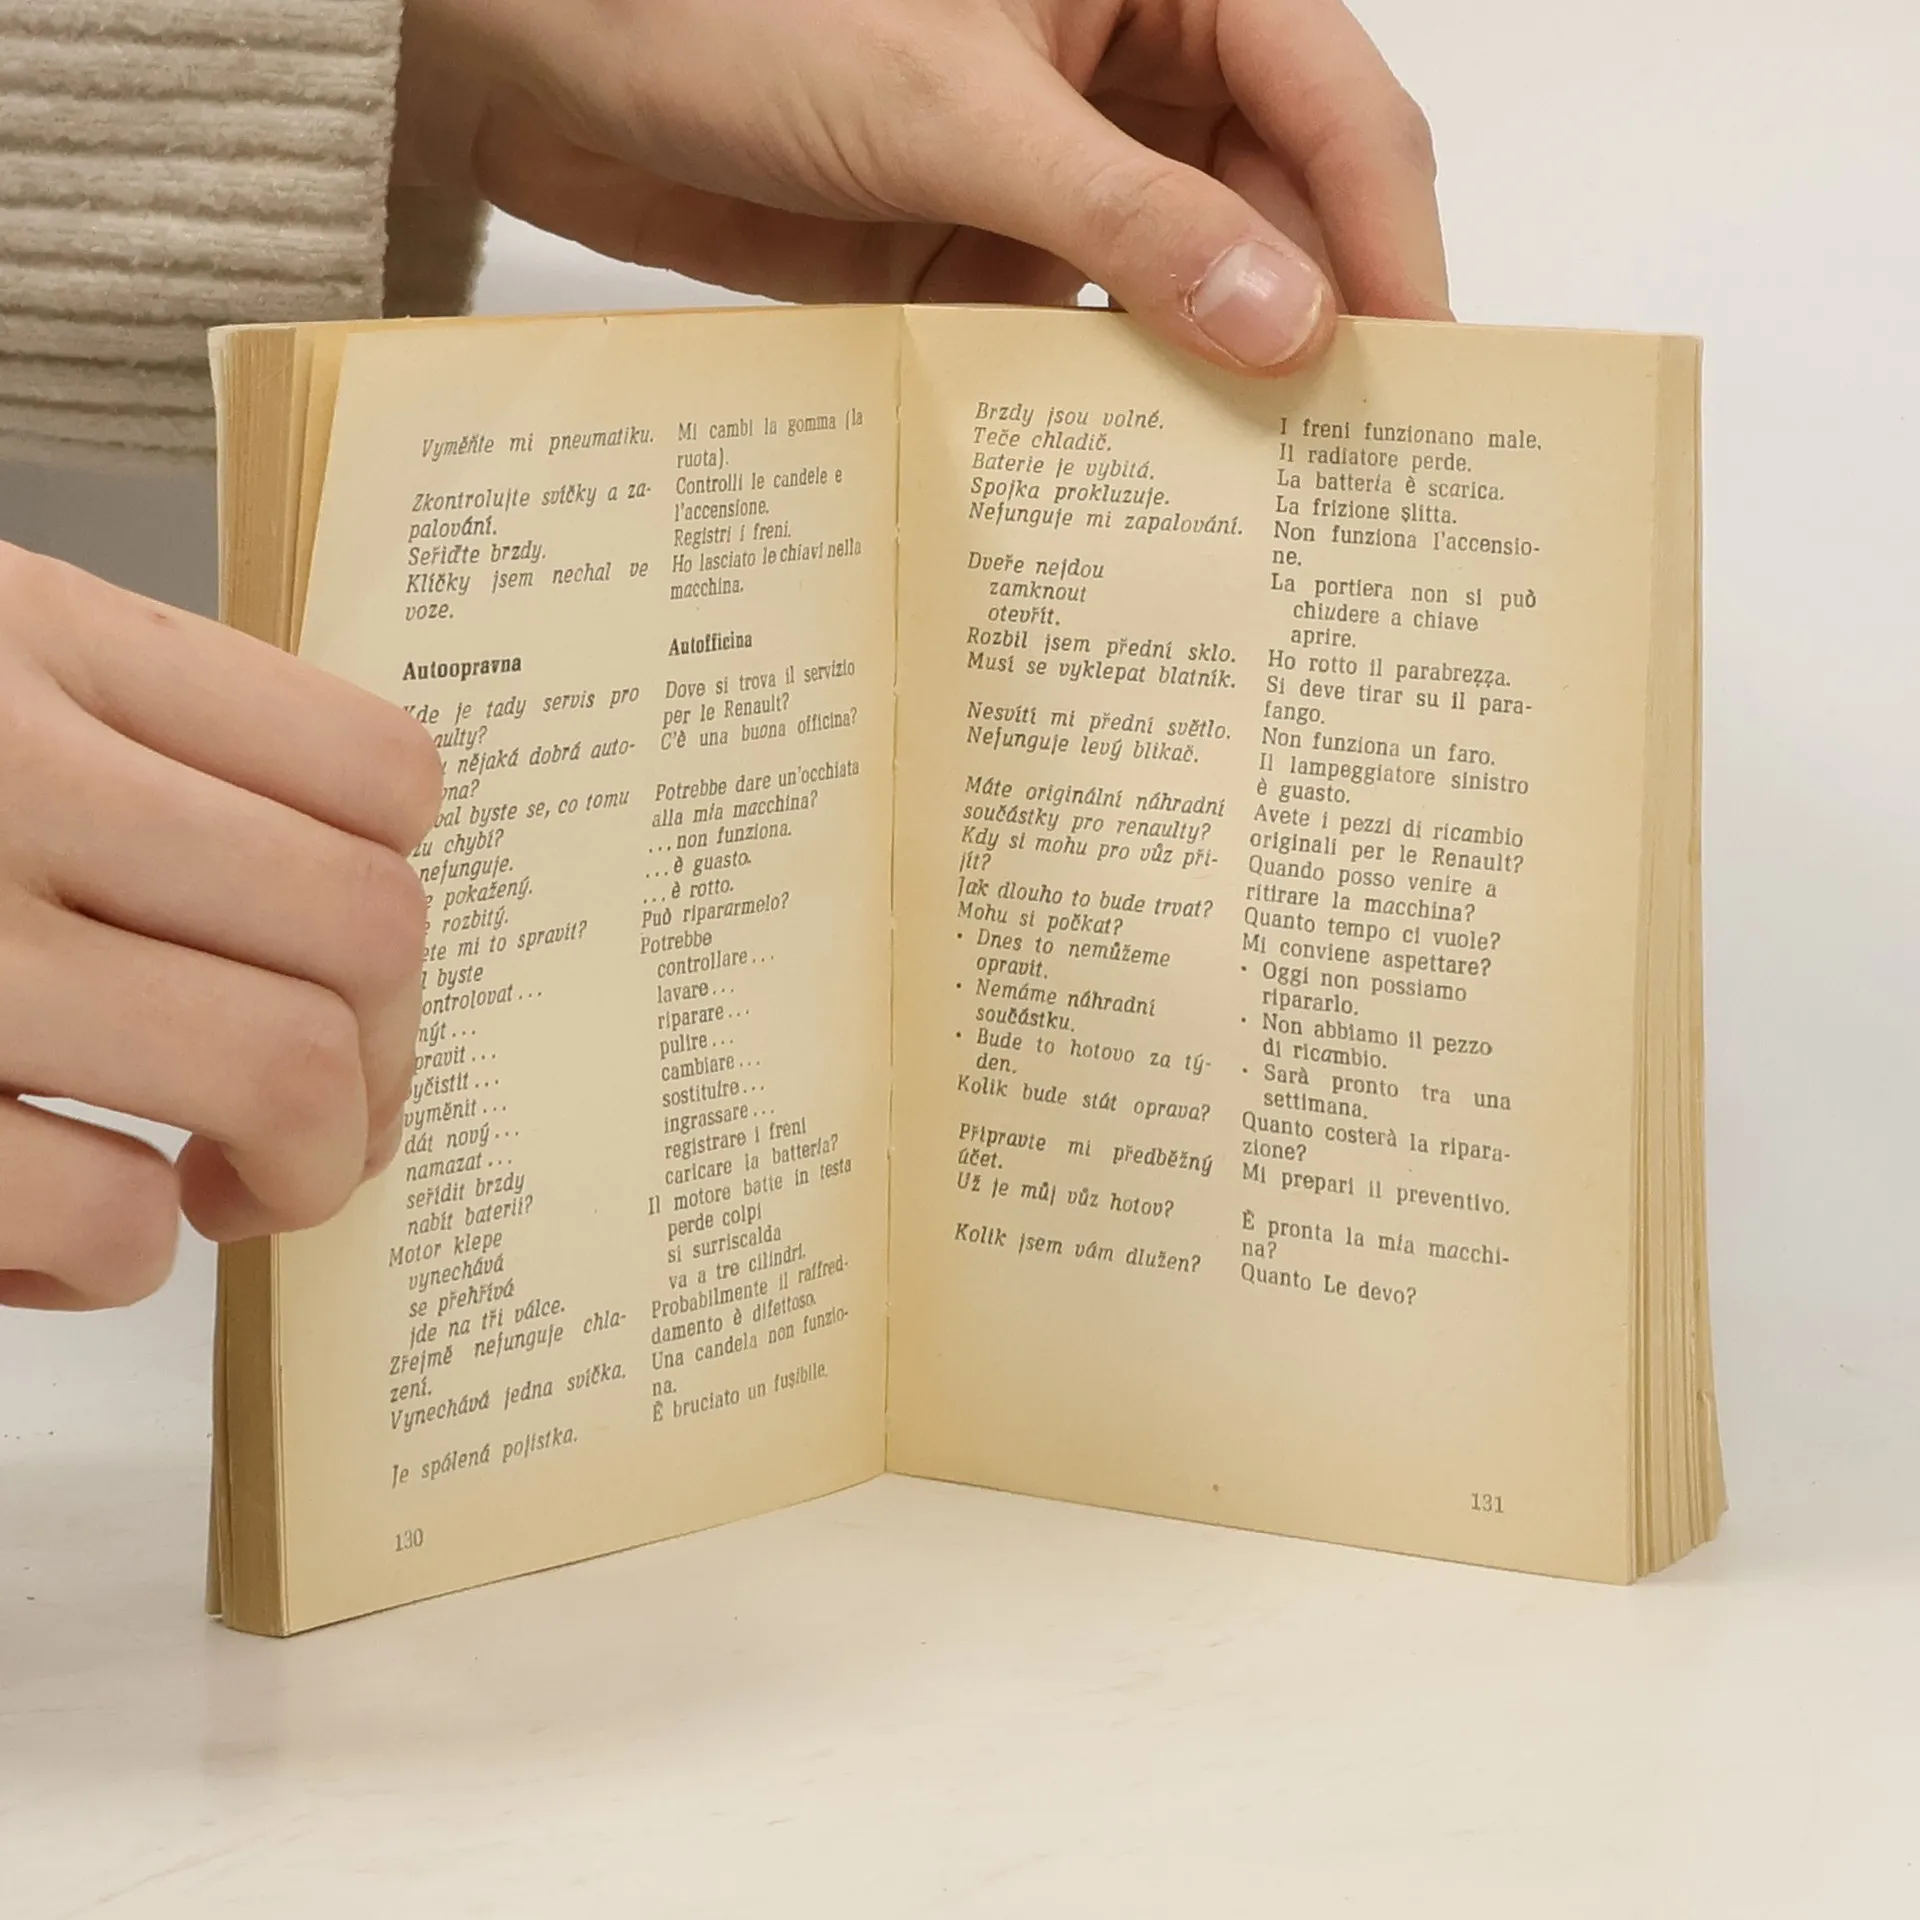 Vyměňte mi pneumatiku.
Zkontrolujte svíčky a za-
palování.
Seřiďte brzdy.
Klíčky jsem nechal ve
voze.
Autoopravna
je tady servis pro
nějaká dobrá auto-
byste se, co tomu
chybí?
nefunguje.
pokažený.
rozbitý.
mi to spravit?
byste
...
...
...
...
vyměnit...
dát nový...
namazat...
seřídit brzdy
nabít baterii?
Motor klepe
vynechává
se přehřívá
jde na tři válce.
Zřejmě nefunguje chla-
zení.
Vynechává jedna svíčka.
Je spálená pojistka.
130
Mi cambi la gomma (la
ruota).
Controlli le candele e
l'accensione.
Registri i freni.
Ho lasciato le chiavi nella
macchina.
Autofficina
Dove si trova il servizio
per le Renault?
C'è una buona officina?
Potrebbe dare un'occhiata
alla mia macchina?
...non funziona.
...è guasto.
...è rotto.
Può ripararmelo?
Potrebbe
controllare...
lavare...
riparare...
pulire...
cambiare...
sostituire...
ingrassare...
registrare i freni
caricare la batteria?
Il motore batte in testa
perde colpi
si surriscalda
va a tre cilindri.
Probabilmente il raffred-
damento è difettoso.
Una candela non funzio-
na.
È bruciato un fusibile.
Brzdy jsou volné.
Teče chladič.
Baterie je vybitá.
Spojka prokluzuje.
Nefunguje mi zapalování.
Dveře nejdou
zamknout
otevřít.
Rozbil jsem přední sklo.
Musí se vyklepat blatník.
Nesvítí mi přední světlo.
Nefunguje levý blikač.
Máte originální náhradní
součástky pro renaulty?
Kdy si mohu pro vůz při-
jít?
Jak dlouho to bude trvat?
Mohu si počkat?
• Dnes to nemůžeme
opravit.
• Nemáme náhradní
součástku.
• Bude to hotovo za tý-
den.
Kolik bude stát oprava?
Připravte mi předběžný
účet.
Už je můj vůz hotov?
Kolik jsem vám dlužen?
I freni funzionano male.
Il radiatore perde.
La batteria è scarica.
La frizione slitta.
Non funziona l'accensio-
ne.
La portiera non si può
chiudere a chiave
aprire.
Ho rotto il parabrezza.
Si deve tirar su il para-
fango.
Non funziona un faro.
Il lampeggiatore sinistro
è guasto.
Avete i pezzi di ricambio
originali per le Renault?
Quando posso venire a
ritirare la macchina?
Quanto tempo ci vuole?
Mi conviene aspettare?
• Oggi non possiamo
ripararlo.
• Non abbiamo il pezzo
di ricambio.
• Sarà pronto tra una
settimana.
Quanto costerà la ripara-
zione?
Mi prepari il preventivo.
È pronta la mia macchi-
na?
Quanto Le devo?
131